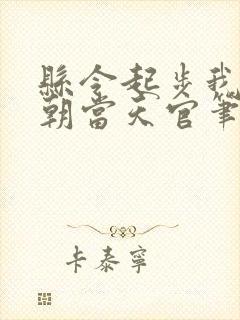 縣令起步我
朝當天官筆
卡泰寧